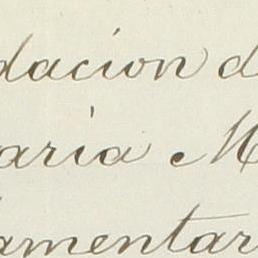 dacion d
aria M
amentar